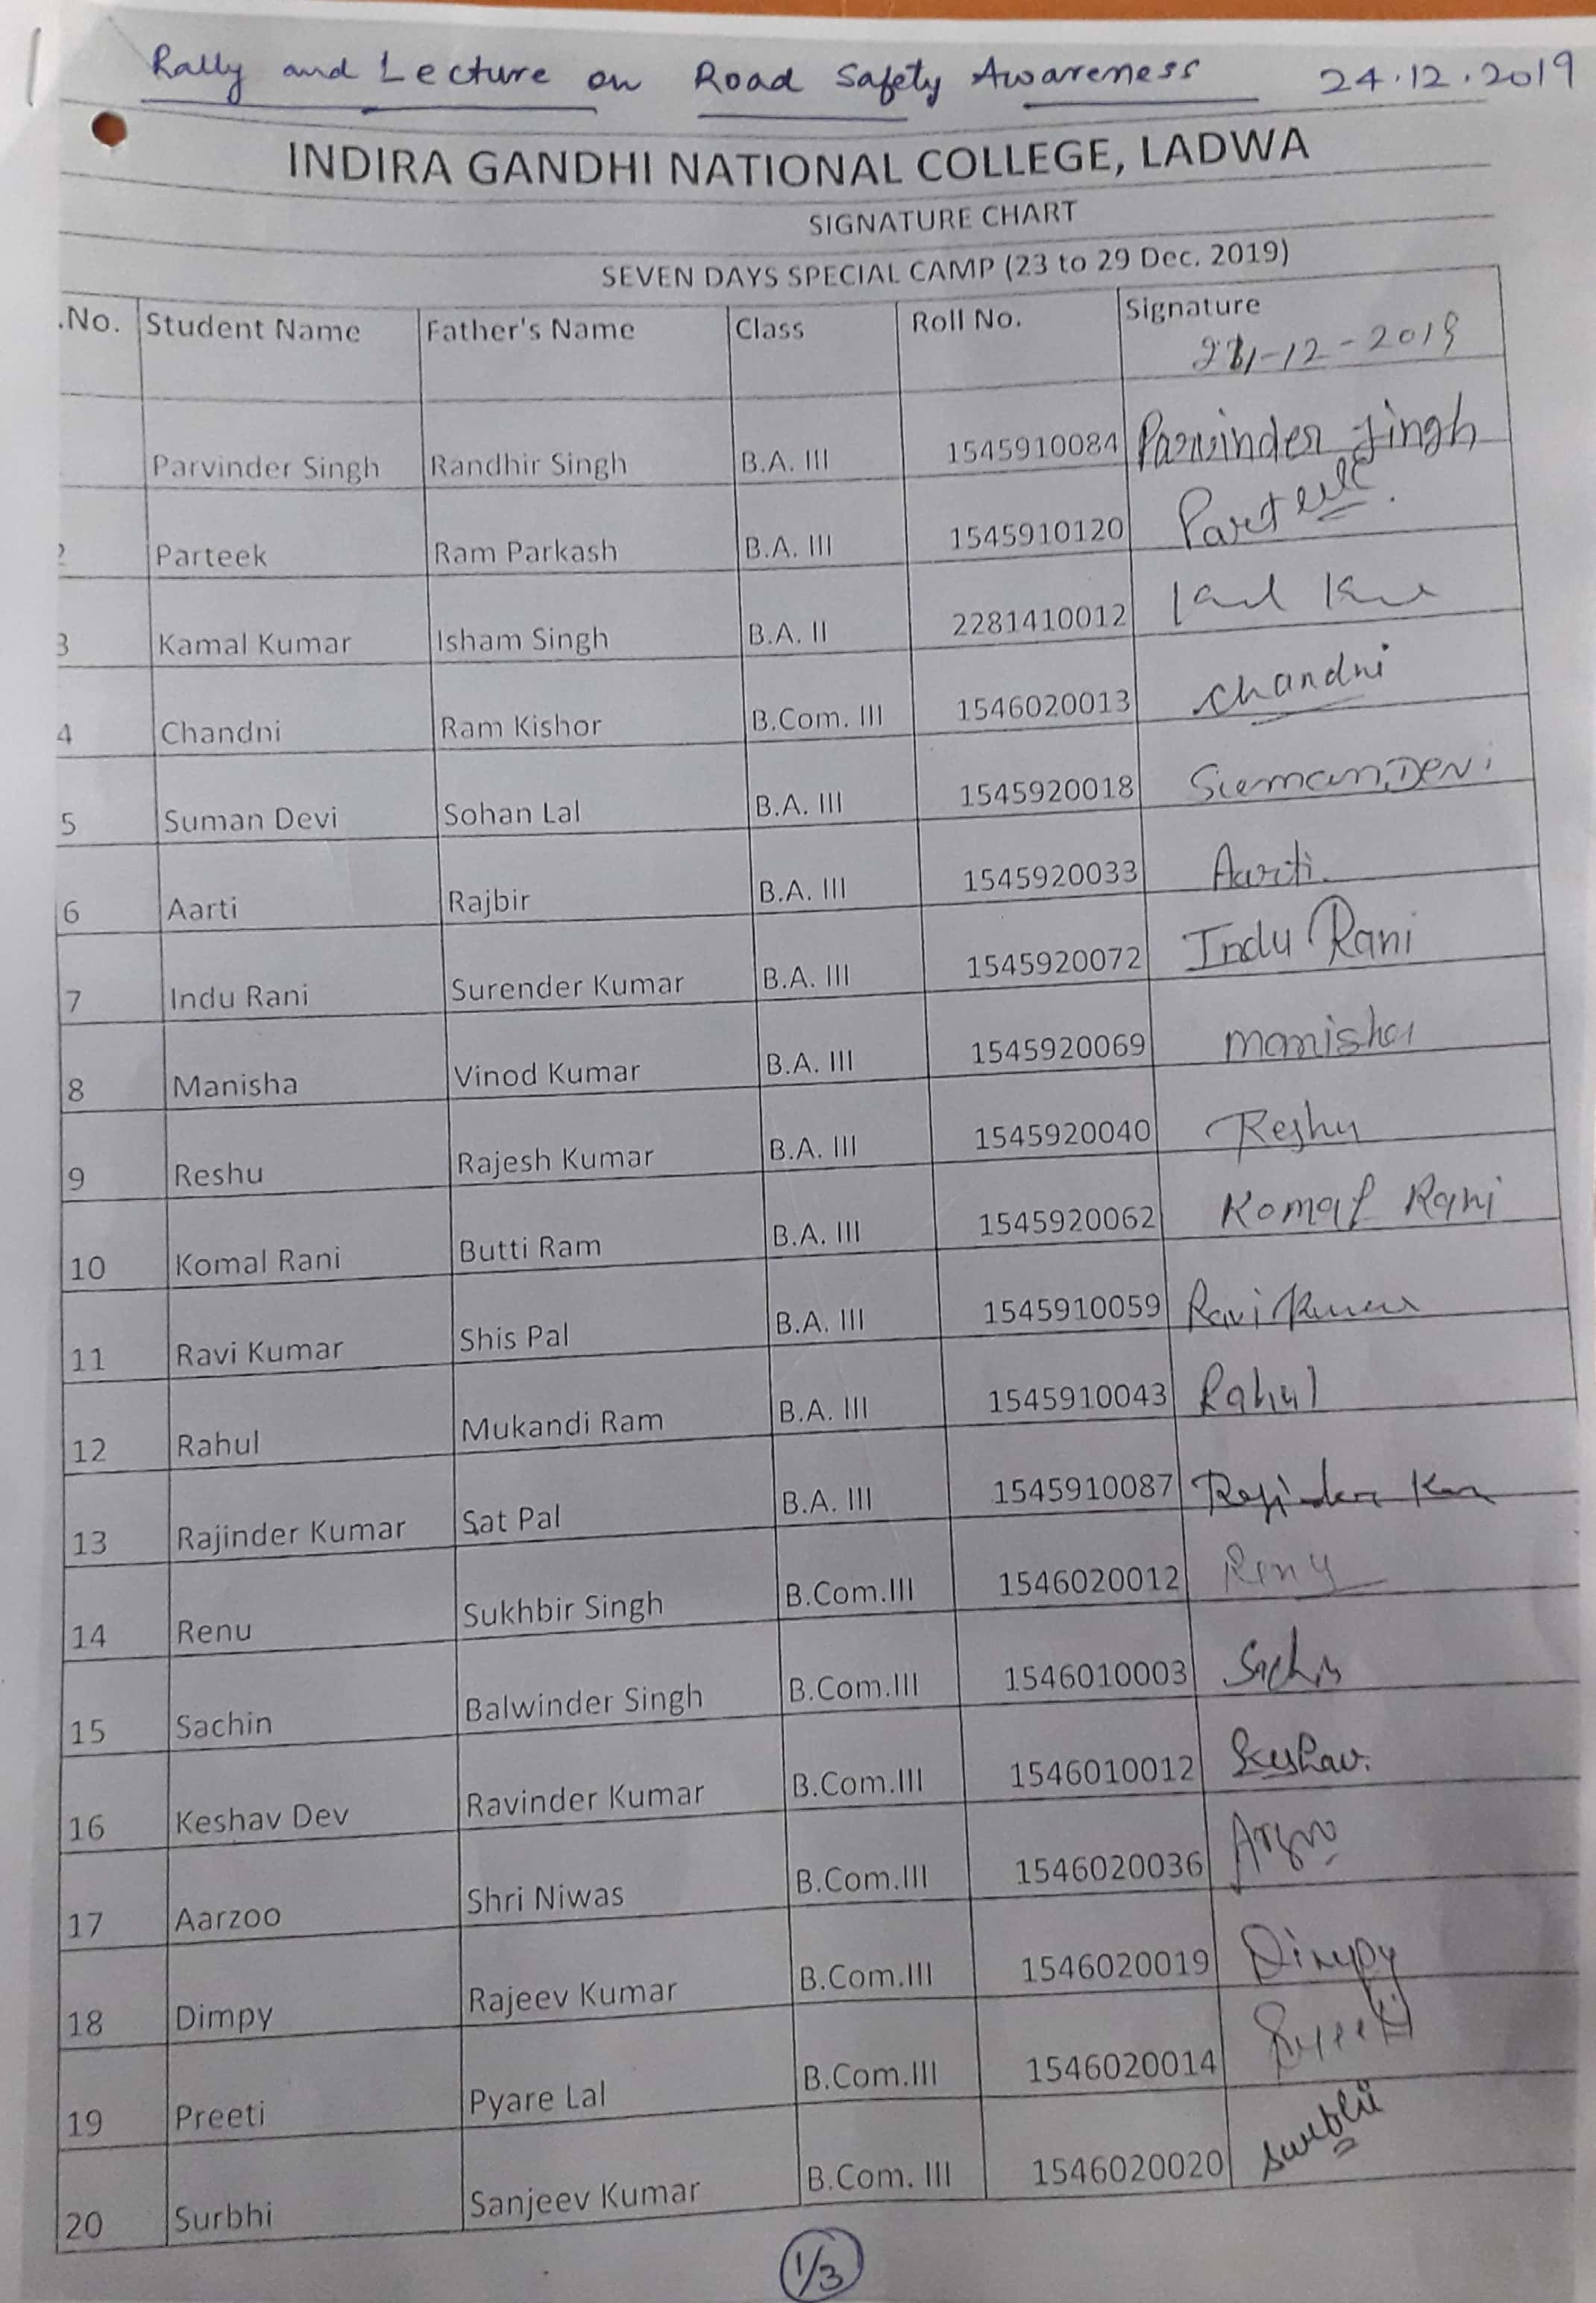 Rally and Lecture on Road Safety Awareness 24.12.2019
INDIRA GANDHI NATIONAL COLLEGE, LADWA
SIGNATURE CHART
SEVEN DAYS SPECIAL CAMP (23 to 29 Dec. 2019)
.No. Student Name Father's Name Class Roll No. Signature
-12-2019
Parvinder Singh Randhir Singh B.A. III 1545910084 Parvinder Singh
2 Parteek Ram Parkash B.A. III 1545910120 Parteek
3 Kamal Kumar Isham Singh B.A. II 2281410012
4 Chandni Ram Kishor B.Com. III 1546020013 Chandni
5 Suman Devi Sohan Lal B.A. III 1545920018 Suman Devi
6 Aarti Rajbir B.A. III 1545920033 Aarti
7 Indu Rani Surender Kumar B.A. III 1545920072 Indu Rani
8 Manisha Vinod Kumar B.A. III 1545920069 Manisha
9 Reshu Rajesh Kumar B.A. III 1545920040 Reshu
10 Komal Rani Butti Ram B.A. III 1545920062 Komal Rani
11 Ravi Kumar Shis Pal B.A. III 1545910059 Ravi Kumar
12 Rahul Mukandi Ram B.A. III 1545910043 Rahul
13 Rajinder Kumar Sat Pal B.A. III 1545910087 Rajinder
14 Renu Sukhbir Singh B.Com.III 1546020012 Renu
15 Sachin Balwinder Singh B.Com.III 1546010003 Sachin
16 Keshav Dev Ravinder Kumar B.Com.III 1546010012 Keshav.
17 Aarzoo Shri Niwas B.Com.III 1546020036
18 Dimpy Rajeev Kumar B.Com.III 1546020019 Dimpy
19 Preeti Pyare Lal B.Com.III 1546020014 Preeti
20 Surbhi Sanjeev Kumar B.Com. III 1546020020 Surbhi
1/3